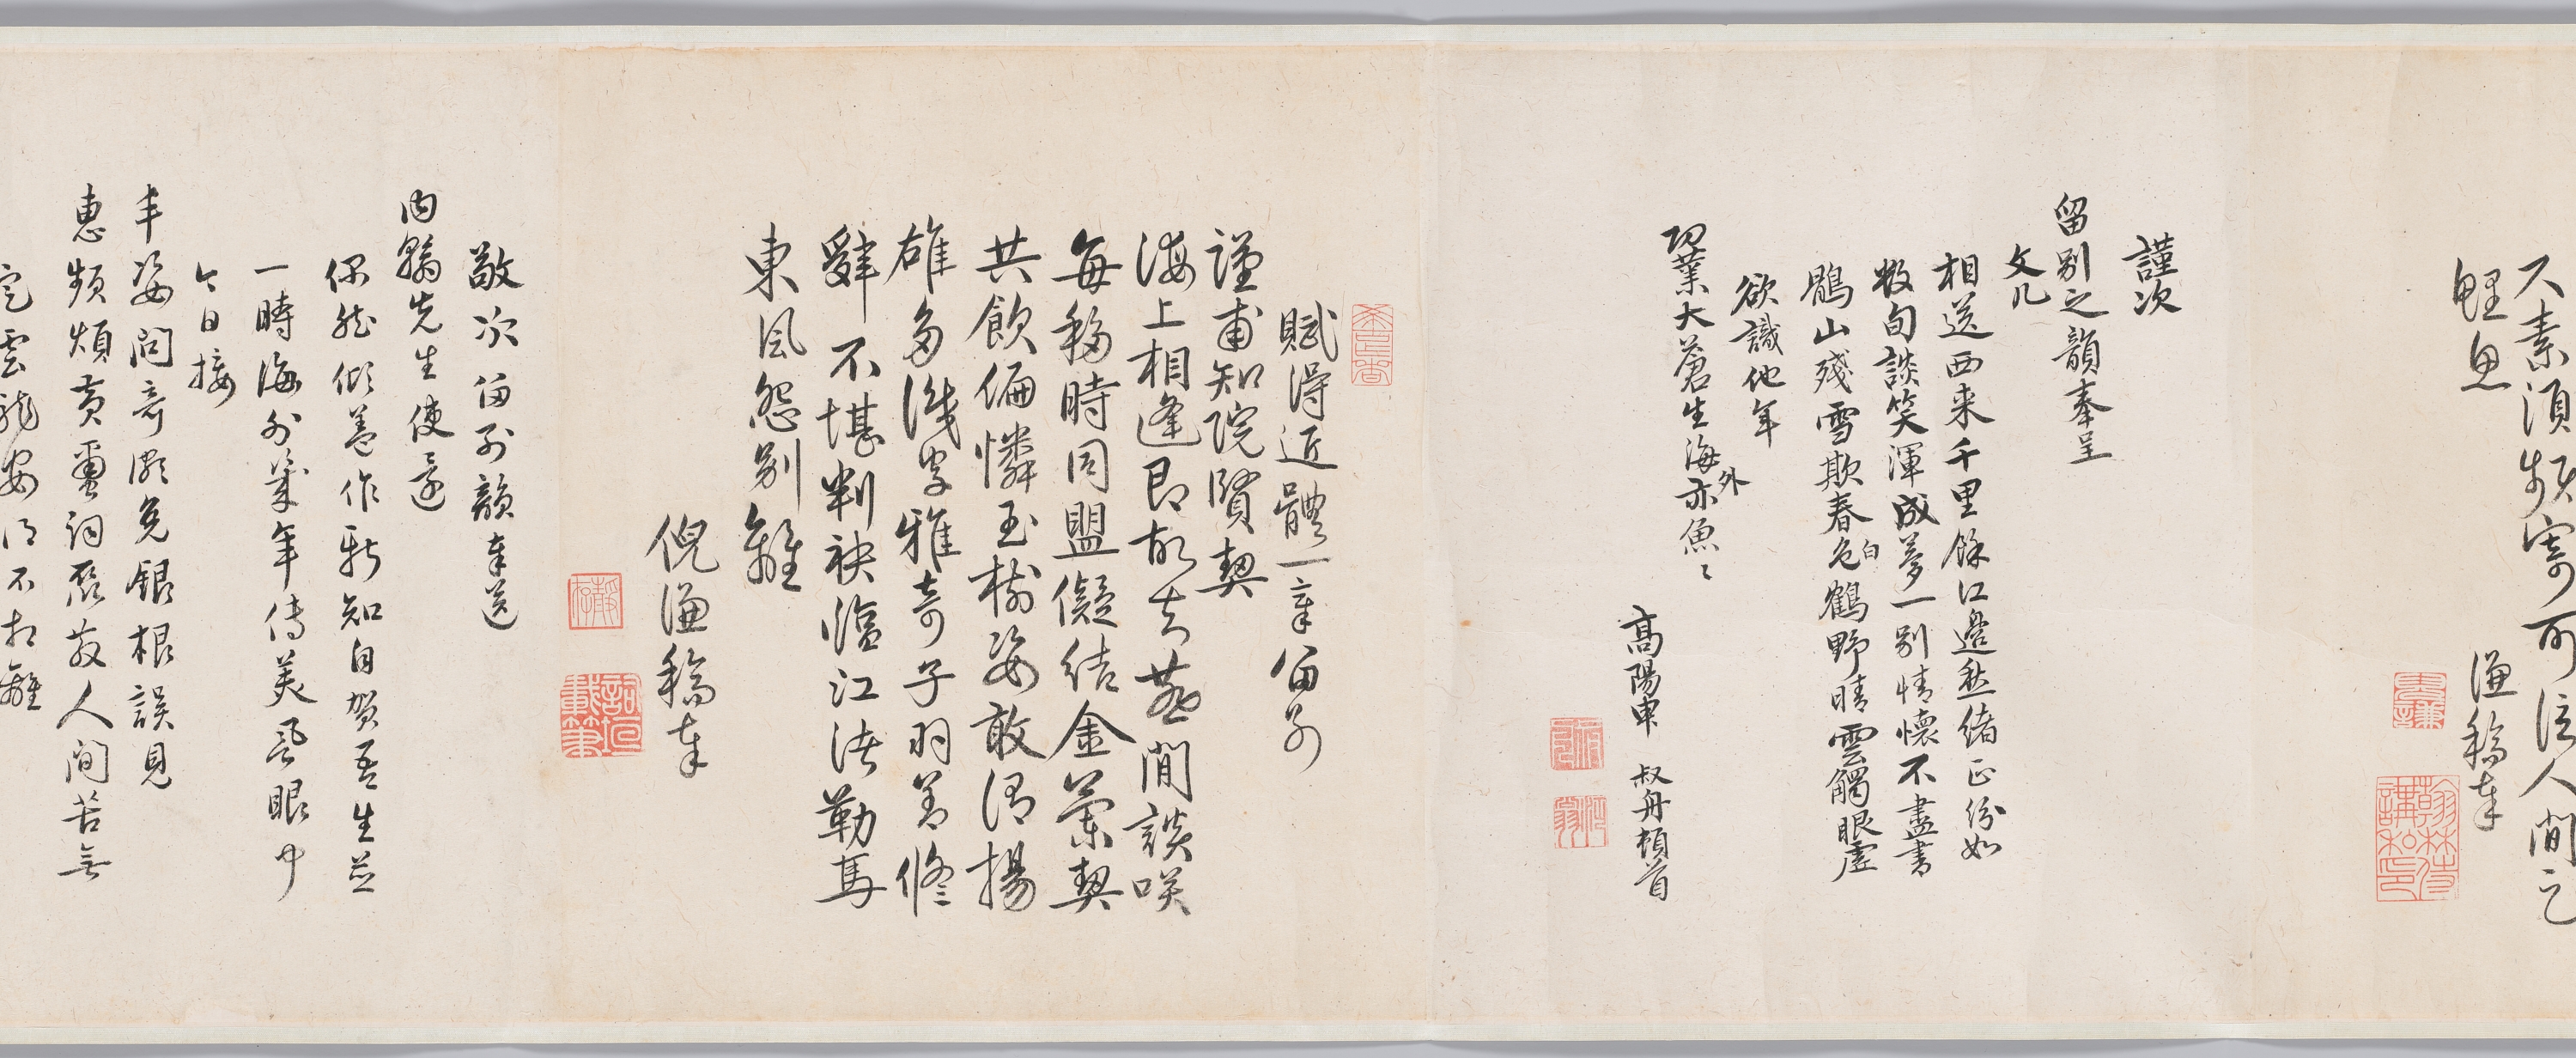 尺素須頻寄可信人間之
鯉魚
謙稿奉
謹次
留別之韻奉呈
文几
相送西来千里餘江邊愁緒正紛如
數旬談笑渾成夢一別情懷不盡書
鵑山殘雪欺春色白鶴野晴雲觸眼虛
欲識他年
功業大蒼生海外亦魚〻
高陽申 叔舟頓首
賦得近體一章留別
謹甫知院賢契
海上相逢即故知燕閒談咲
每移時同盟儗結金蘭契
共飲偏憐玉樹姿敢謂揚
雄多識字雅奇子羽善脩
辭不堪判袂臨江渚勒馬
東風怨別離
倪謙稿奉
敬次留別韻奉送
內翰先生使還
偶然傾蓋作新知自賀吾生並
一時海外幾年傳美譽眼中
今日接
丰姿問奇漸免銀根誤見
惠頻煩黃絹詞聚散人間苦無
定雲龍安得不相離